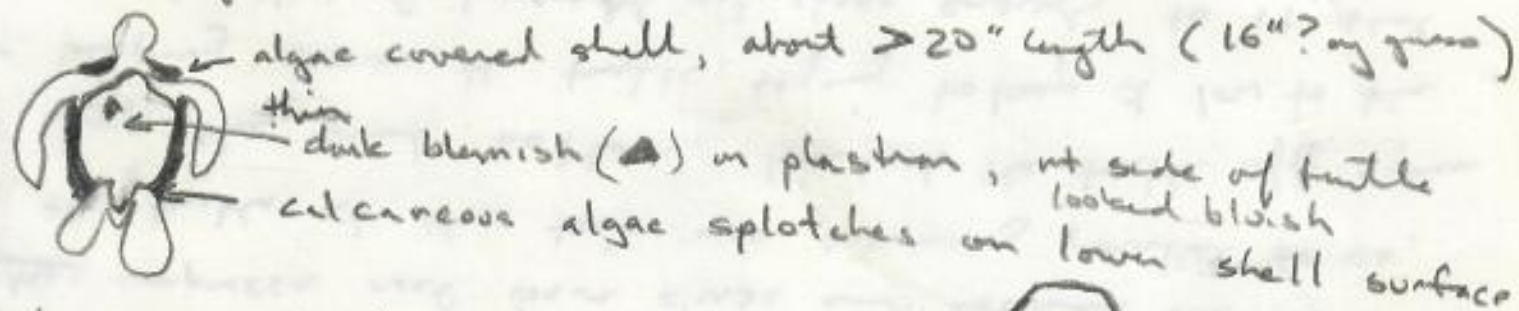 algae covered shell, about >20" length (16"? my guess)
thin
dark blemish (▲) on plastron, rt side of turtle
looked bluish
calcareous algae splotches on lower shell surface